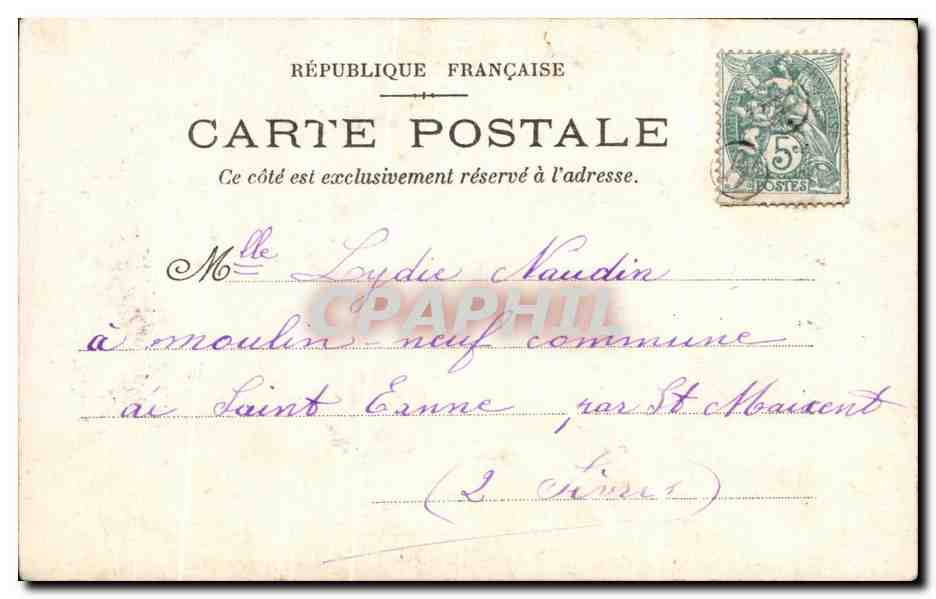 RÉPUBLIQUE FRANÇAISE
CARTE POSTALE
Ce côté est exclusivement réservé à l'adresse.
5c
POSTES
Mlle Lydie Naudin
CPAPHIL
à moulin-neuf commune
de Saint Eanne par St Maixent
(2 Sèvres)